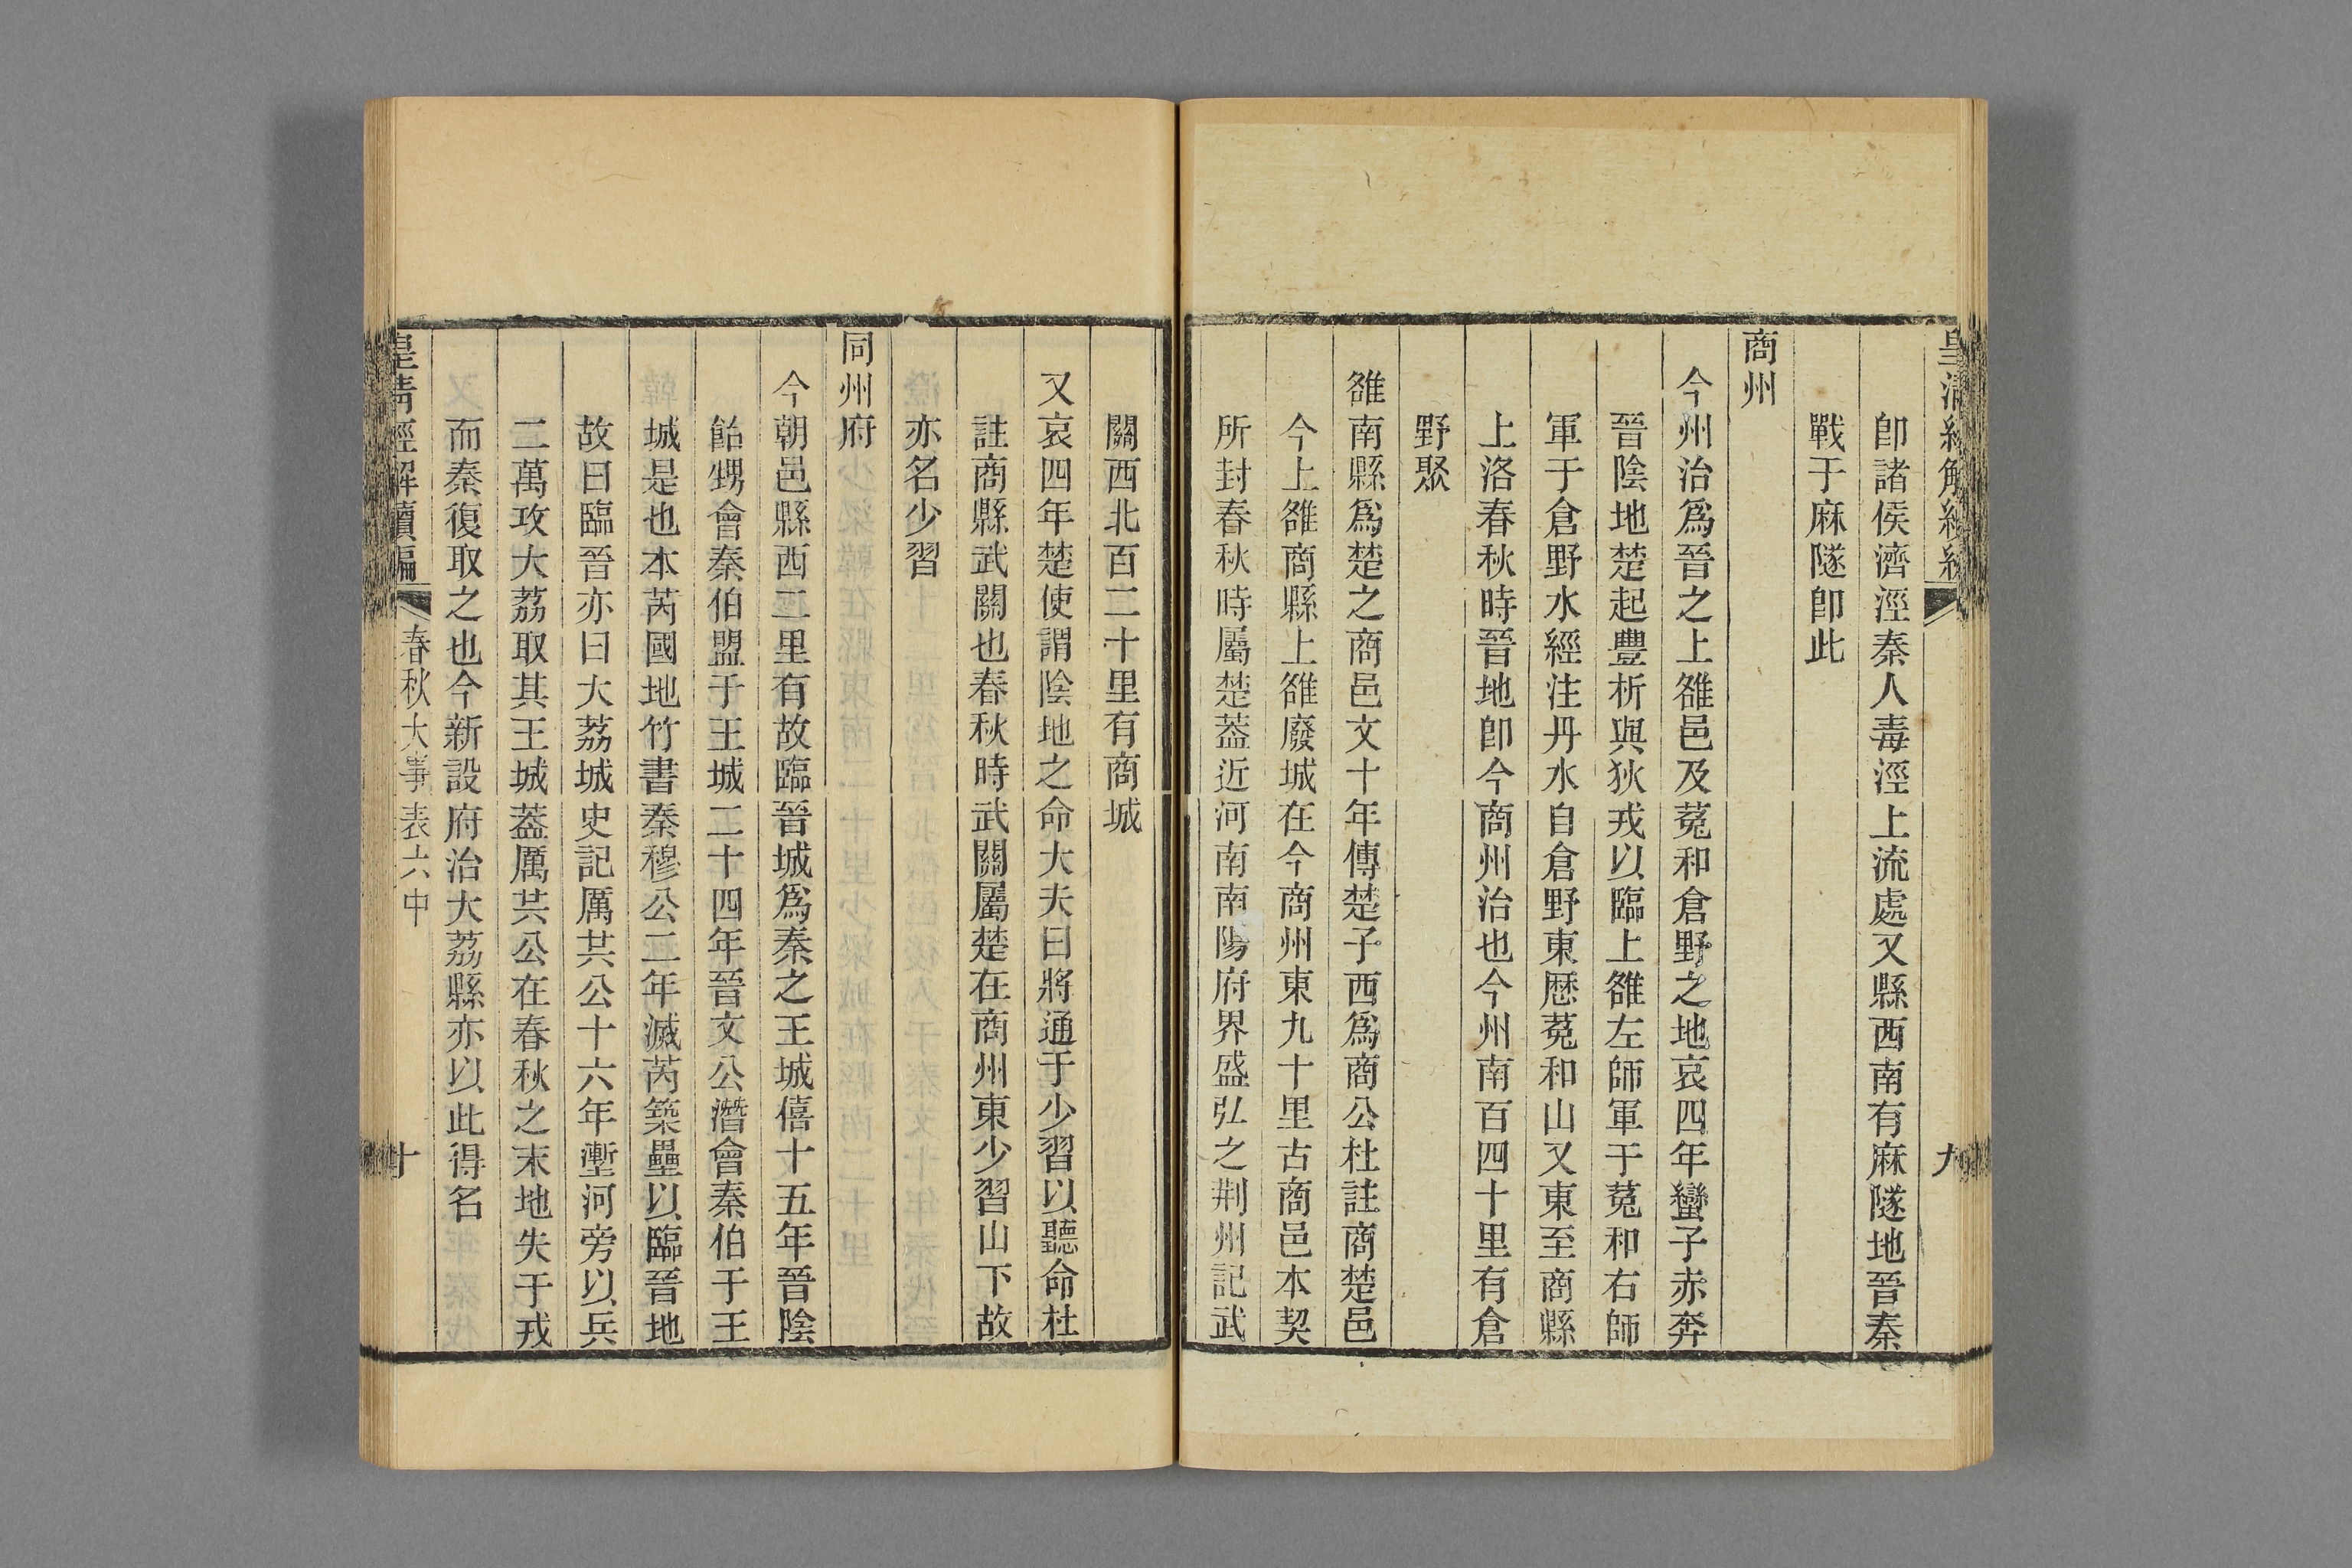 卽諸侯濟涇秦人毒涇上流處又縣西南有麻隧地晉秦
戰于麻隧卽此
商州
今州治爲晉之上雒邑及菟和倉野之地哀四年蠻子赤奔
晉陰地楚起豐析與狄戎以臨上雒左師軍于菟和右師
軍于倉野水經注丹水自倉野東歷菟和山又東至商縣
上洛春秋時晉地卽今商州治也今州南百四十里有倉
野聚
雒南縣爲楚之商邑文十年傳楚子西爲商公杜註商楚邑
今上雒商縣上雒廢城在今商州東九十里古商邑本契
所封春秋時屬楚葢近河南南陽府界盛弘之荆州記武
關西北百二十里有商城
又哀四年楚使謂陰地之命大夫曰將通于少習以聽命杜
註商縣武關也春秋時武關屬楚在商州東少習山下故
亦名少習
同州府
今朝邑縣西二里有故臨晉城爲秦之王城僖十五年晉陰
飴甥會秦伯盟于王城二十四年晉文公潛會秦伯于王
城是也本芮國地竹書秦穆公二年滅芮築壘以臨晉地
故曰臨晉亦曰大荔城史記厲共公十六年塹河旁以兵
二萬攻大荔取其王城葢厲共公在春秋之末地失于戎
而秦復取之也今新設府治大荔縣亦以此得名
皇清經解續編 春秋大事表六中 十